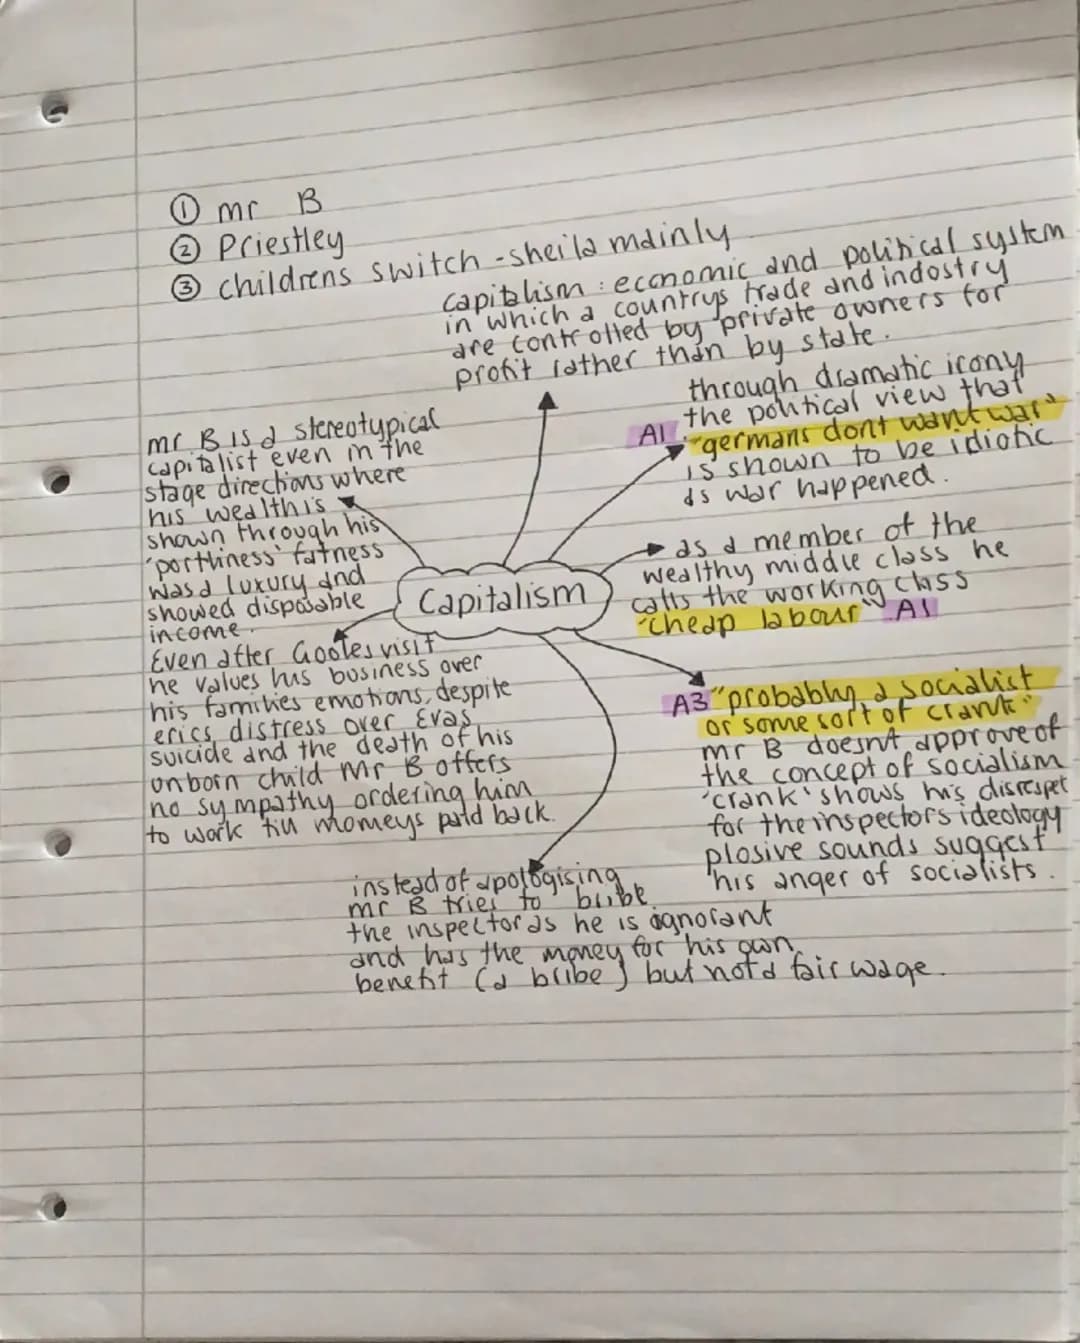 ① mr B
② Priestley
③ childrens switch - sheila mainly
capitalism : economic and political system
in which a countrys trade and indostry
are controlled by private owners for
profit rather than by state.
through dramatic irony
the political view that
A1 "germans dont want war"
is shown to be idiotic
as war happened.
mr B is a stereotypical
capitalist even in the
stage directions where
his wealth is
shown through his
'portliness' fatness
was a luxury and
showed disposable
income.
Capitalism
as a member of the
wealthy middle class he
calls the working class
"cheap labour" A1
Even after Gooles visit
he values his business over
his families emotions, despite
erics distress over Evas
suicide and the death of his
onborn child Mr B offers
no sympathy ordering him
to work till momeys paid back.
A3 "probably a socialist
or some sort of crank"
mr B doesnt approve of
the concept of socialism
'crank' shows his disrespet
for the inspectors ideology
plosive sounds suggest
his anger of socialists.
instead of apologising
mr B tries to bribe
the inspector as he is ignorant
and has the money for his own
benefit (a bribe) but not a fair wage.